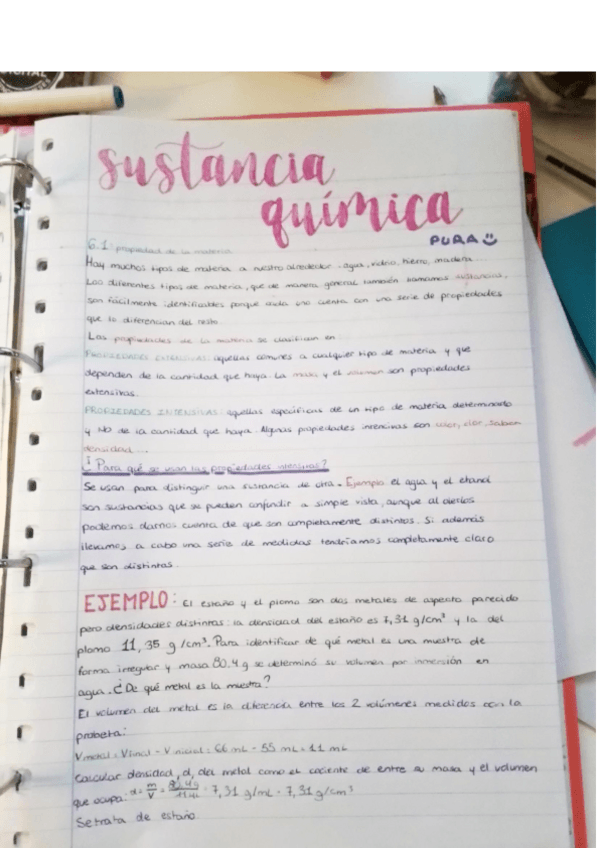 sustancia
química
PURA
6.1: propiedad de la materia
Hay muchos tipos de materia a nuestro alrededor. agua, vidrio, hierro, madera...
Los diferentes tipos de materia, que de manera general también llamamos sustancias,
son fácilmente identificables porque cada uno cuenta con una serie de propiedades
que lo diferencian del resto.
Las propiedades de la materia se clasifican en
PROPIEDADES EXTENSIVAS: aquellas comunes a cualquier tipo de materia y que
dependen de la cantidad que haya. La masa y el volumen son propiedades
extensivas.
PROPIEDADES INTENSIVAS: aquellas específicas de un tipo de materia determinado
y NO de la cantidad que haya. Algunas propiedades intensivas son color, olor, sabor
densidad...
¿Para qué se usan las propiedades intensivas?
Se usan para distinguir una sustancia de otra. Ejemplo el agua y el etanol
son sustancias que se pueden confundir a simple vista, aunque al olerlos
podemos darnos cuenta de que son completamente distintos. Si además
llevamos a cabo una serie de medidas tendríamos completamente claro
que son distintos.
EJEMPLO: El estaño y el plomo son dos metales de aspecto parecido
pero densidades distintas: la densidad del estaño es 7,31 g/cm³ y la del
plomo 11,35 g/cm³. Para identificar de qué metal es una muestra de
forma irregular y masa 80.4 g se determinó su volumen por inmersión en
agua. ¿De qué metal es la muestra?
El volumen del metal es la diferencia entre los 2 volúmenes medidos con la
probeta:
Vmetal = Vfinal - Vinicial = 66 mL - 55 mL = 11 mL
Calcular densidad, d, del metal como el cociente de entre su masa y el volumen
que ocupa: d = m/V = = 7,31 g/mL = 7,31 g/cm³
Se trata de estaño